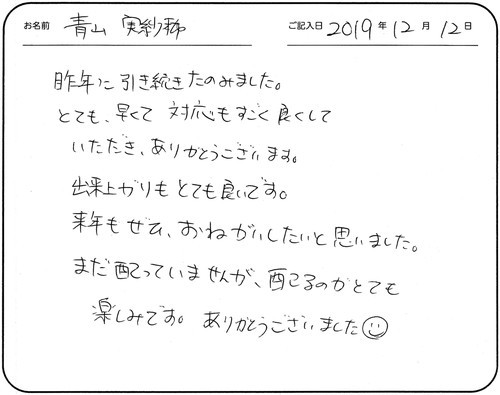 お名前 青山 実紗稀 ご記入日 2019年12月12日
昨年に引き続きたのみました。
とても、早くて 対応もすごく良くして
いただき、ありがとうございます。
出来上がりもとても良いです。
来年もぜひ、おねがいしたいと思いました。
まだ配っていませんが、配るのがとても
楽しみです。ありがとうございました